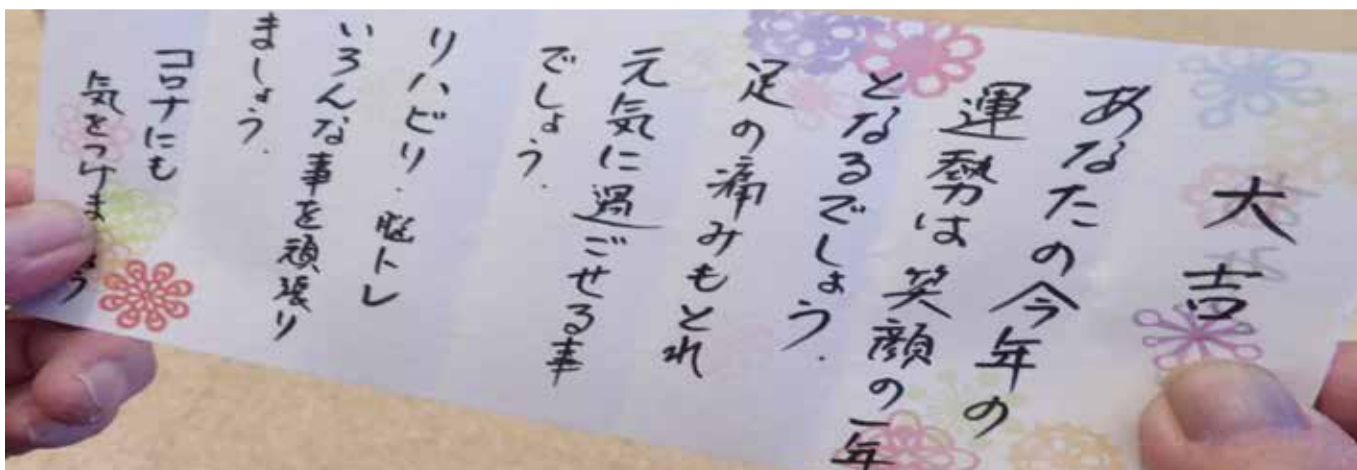 大吉
あなたの今年の
運勢は笑顔の一年
となるでしょう.
足の痛みもとれ
元気に過ごせる事
でしょう.
リハビリ・脳トレ
いろんな事を頑張り
ましょう.
コロナにも
気をつけま う